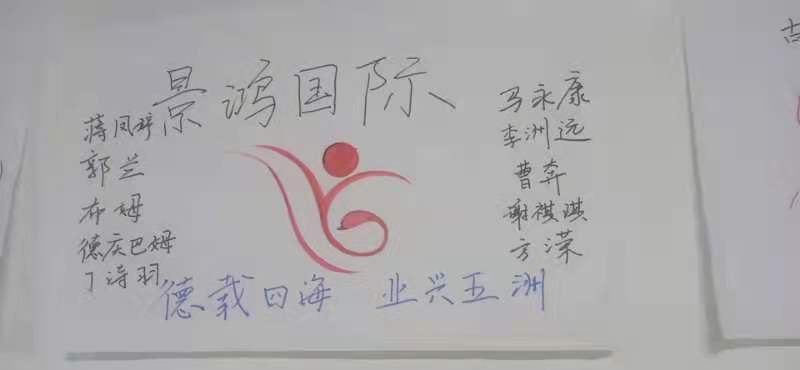 景鸿国际
蒋凤婷
郭兰
布姆
德庆巴姆
丁诗羽
马永康
李洲远
曹奔
谢祺琪
方滢
德载四海 业兴五洲